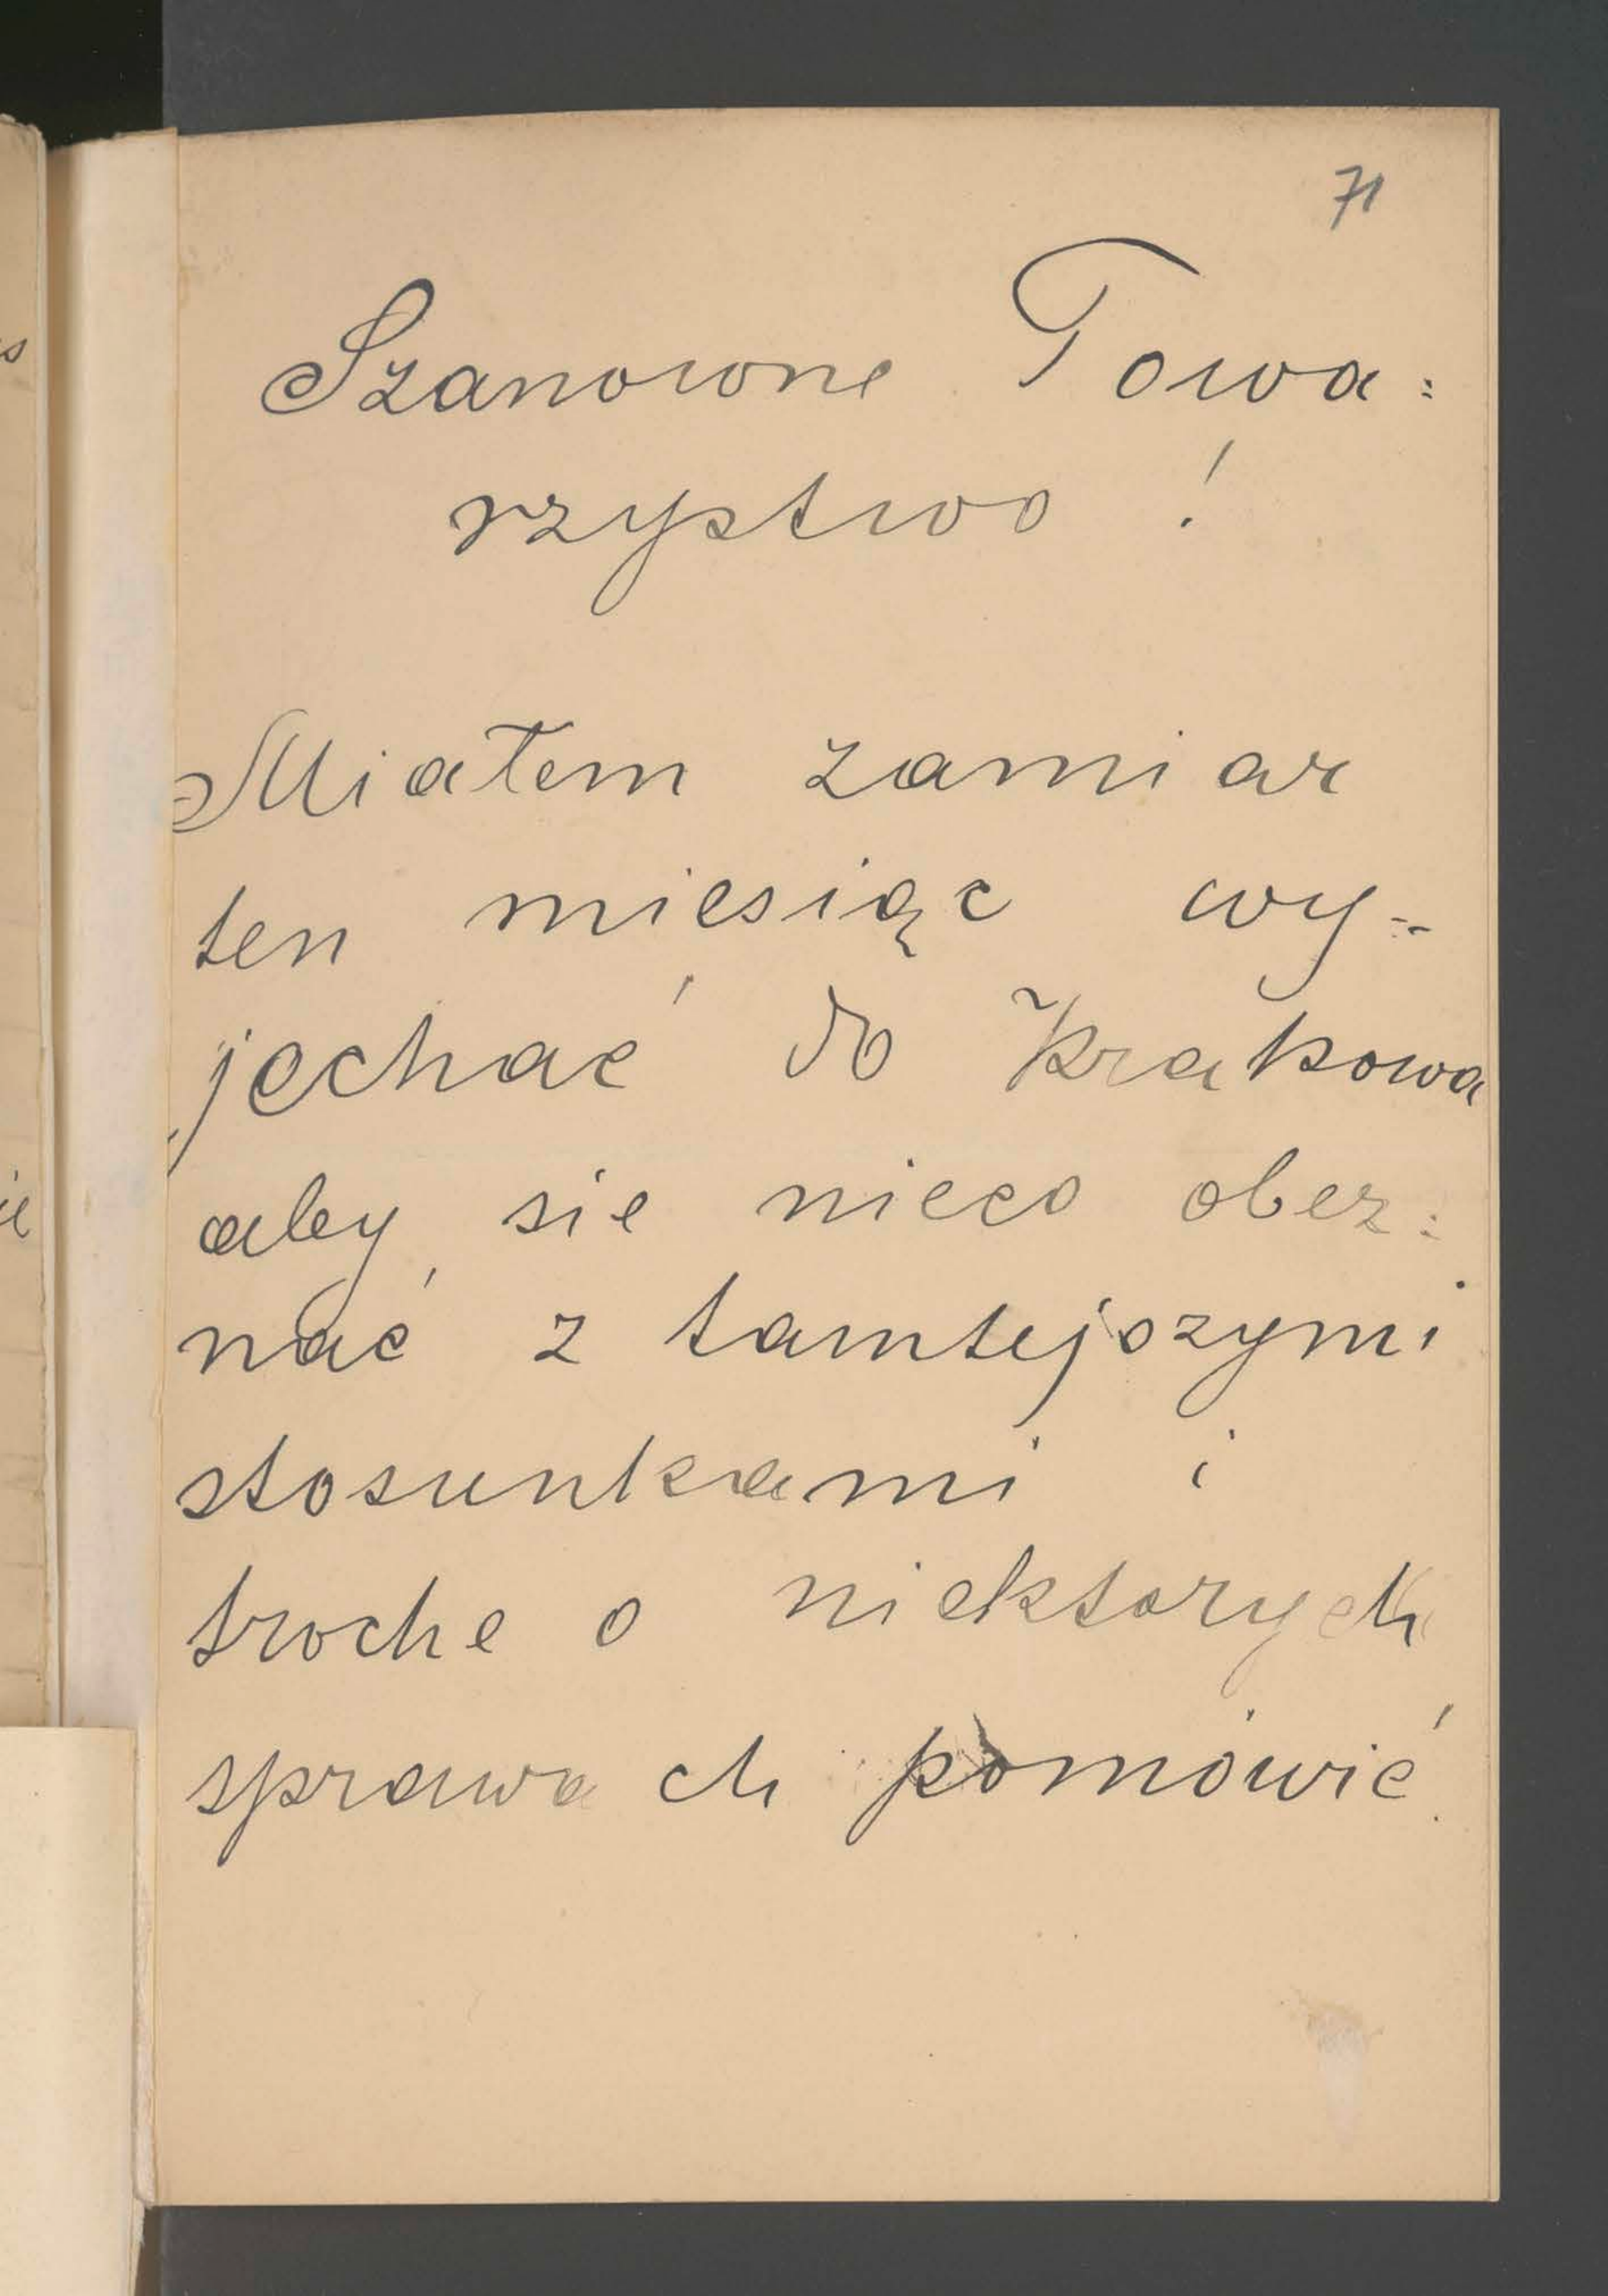 71
Szanowne Towa:
rzystwo !
Miałem zamiar
ten miesiąc wy=
jechać do Krakowa
aby sie nieco obez:
nać z tamtejszymi
stosunkami i
troche o niektorych
sprawach pomówić